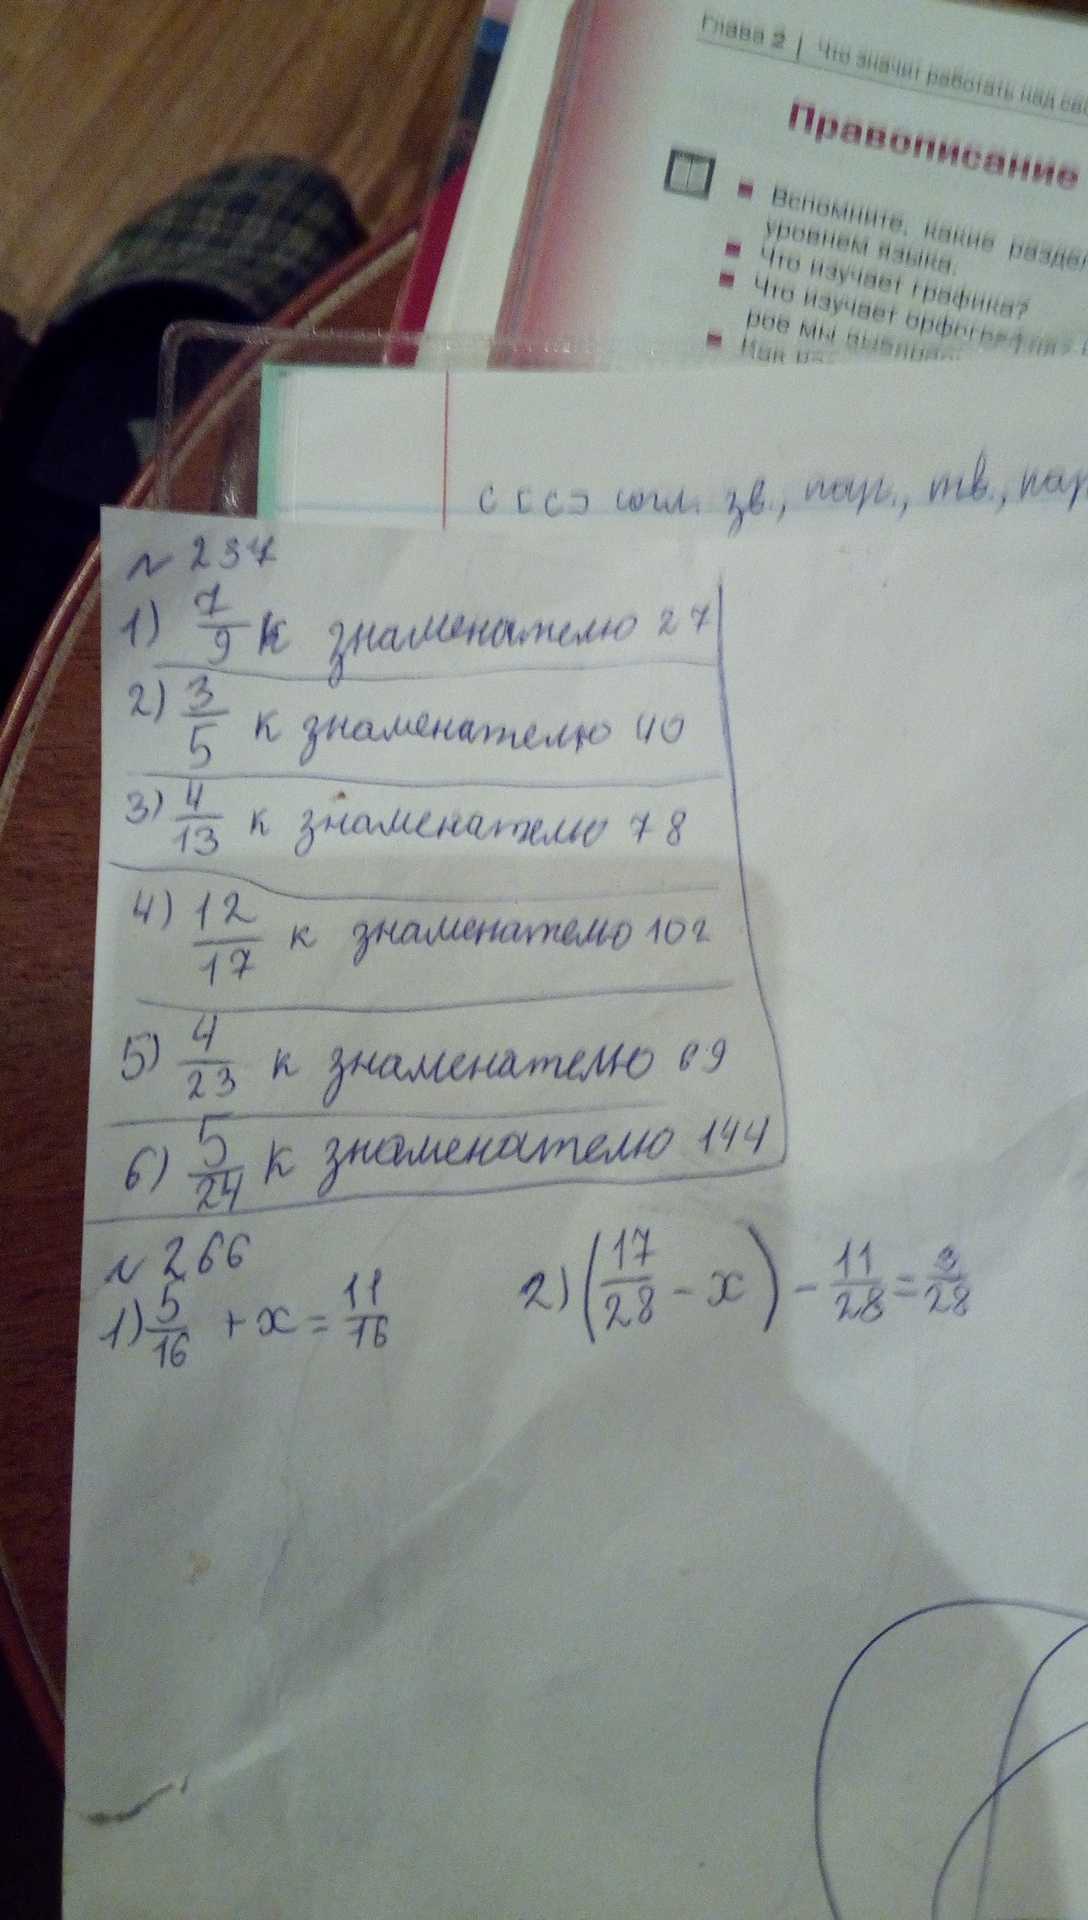 Глава 2 | Что значит работать над сво
Правописание
Вспомните, какие раздел
уровнем языка.
Что изучает графика?
Что изучает орфограф
рое мы
согл. зв., пар., тв., пар
N 237
1) 7/9 к знаменателю 27
2) 3/5 к знаменателю 40
3) 4/13 к знаменателю 78
4) 12/17 к знаменателю 102
5) 4/23 к знаменателю 69
6) 5/24 к знаменателю 144
N 266
1) 5/16 + x = 11/16
2) (17/28 - x) - 11/28 = 3/28